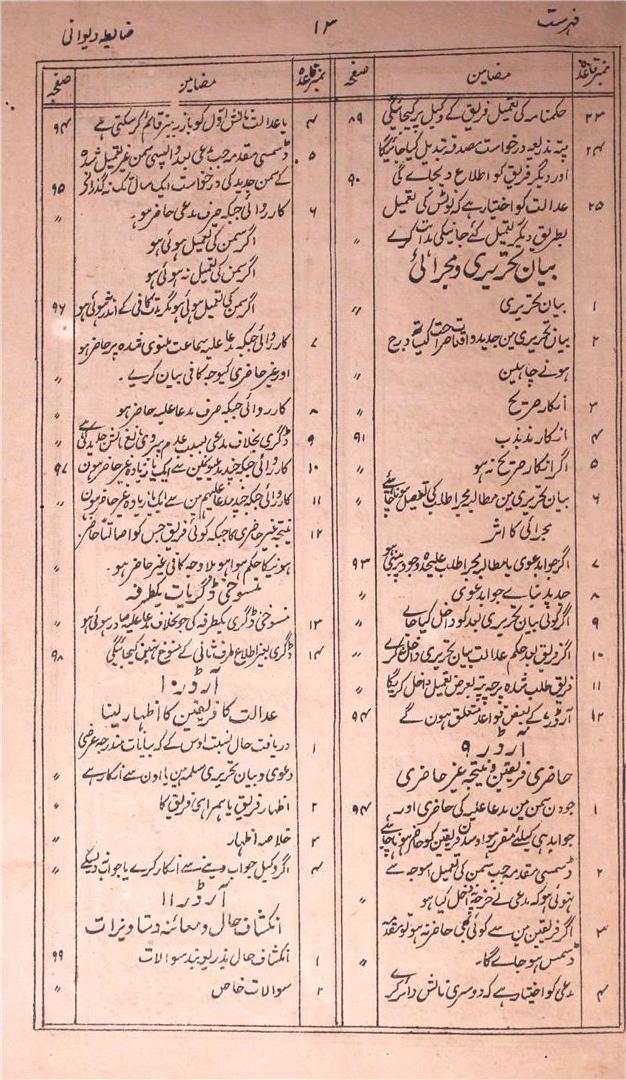 فہرست
۱۳
ضابطہ دیوانی
نمبر قاعدہ مضامین صفحہ
۲۳ حکمنامہ کی تعمیل فریق کے وکیل پر کیجائیگی ۸۹
۲۴ پتہ بذریعہ درخواست مصدقہ تبدیل کیا جائیگا
اور دیگر فریق کو اطلاع دیجاے گی ۹۰
۲۵ عدالت کو اختیار ہے کہ نوٹس کی تعمیل
بطریق دیگر تعمیل کئے جانیکی ہدایت کرے 〃
بیان تحریری و مجرائی
۱ بیان تحریری 〃
۲ بیان تحریری مین جدید واقعات صراحت کیساتھ درج
ہونے چاہئین 〃
۳ انکار صریح 〃
۴ انکار مذبذب ۹۱
۵ اگر انکار صریح نہ ہو 〃
۶ بیان تحریری مین مطالبہ مجرا طلب کی تفصیل ہونا چاہئے 〃
مجرائی کا اثر
۷ اگر جواب دعوی یا مطالبہ مجرا طلب علیحدہ وجوہ پر مبنی ہو ۹۳
۸ جدید بناے جواب دعوی 〃
۹ اگر کوئی بیان تحریری بعد کو داخل کیا جاے 〃
۱۰ اگر فریق بعد حکم عدالت بیان تحریری داخل نکرے 〃
۱۱ فریق طلب شدہ پرچہ پتہ بغرض تعمیل داخل کریگا 〃
۱۲ آرڈر ۷ کے بعض قواعد متعلق ہون گے ۹۴
آرڈر ۹
حاضری فریقین و نتیجہ غیر حاضری
۱ جو دن سمن مین مدعا علیہ کی حاضری اور ۹۴
جوابدہی کیلئے مقرر ہو اوسدن فریقین کو حاضر ہونا چاہئے
۲ ڈسمسی مقدمہ جب سمن کی تعمیل اسوجہ سے
نہوئی ہو کہ مدعی نے خرچہ نہ داخل کیا ہو 〃
۳ اگر فریقین مین سے کوئی بھی حاضر نہ ہو تو مقدمہ
ڈسمس ہو جاے گا۔ 〃
۴ مدعی کو اختیار ہے کہ دوسری نالش دائر کرے
نمبر قاعدہ مضامین صفحہ
۴ یا عدالت نالش اول کو باز بر نمبر قائم کر سکتی ہے ۹۴
۵ ڈسمسی مقدمہ جب مدعی بعد واپسی سمن غیر تعمیل شدہ
کے سمن جدید کی درخواست ایک سال تک نہ گذرانے ۹۵
۶ کارروائی جبکہ صرف مدعی حاضر ہو۔ 〃
اگر سمن کی تعمیل ہوئی ہو
اگر سمن کی تعمیل نہ ہوئی ہو
اگر سمن کی تعمیل ہوئی ہو مگر مدت کافی کے اندر نہوئی ہو ۹۶
۷ کارروائی جبکہ مدعا علیہ سماعت ملتوی شدہ پر حاضر ہو
اور غیر حاضری کیوجہ کافی بیان کرے۔ 〃
۸ کارروائی جبکہ صرف مدعا علیہ حاضر ہو 〃
۹ ڈگری بخلاف مدعی بسبب عدم پیروی مانع نالش جدید کی ہے 〃
۱۰ کارروائی جبکہ چند مدعیون مین سے ایک یا زیادہ غیر حاضر ہون ۹۷
۱۱ کارروائی جبکہ چند مدعا علیہم مین سے ایک یا زیادہ غیر حاضر ہون 〃
۱۲ نتیجہ غیر حاضری کا جبکہ کوئی فریق جس کو اصالتاً حاضر
ہونیکا حکم ہوا ہو بلا وجہ کافی غیر حاضر ہو۔ 〃
منسوخی ڈگریات یکطرفہ
۱۳ منسوخی ڈگری یکطرفہ کی جو بخلاف مدعا علیہ صادر ہوئی ہو 〃
۱۴ ڈگری بغیر اطلاع طرف ثانی کے منسوخ نہین کیجائیگی ۹۸
آرڈر ۱۰
عدالت کا فریقین کا اظہار لینا
۱ دریافت حال نسبت اوس کے کہ بیانات مندرجہ عرضی
دعوی و بیان تحریری مسلمہ ہین یا اون سے انکار ہے 〃
۲ اظہار فریق یا ہمراہی فریق کا 〃
۳ خلاصہ اظہار 〃
۴ اگر وکیل جواب دینے سے انکار کرے یا جواب نہ دیسکے 〃
آرڈر ۱۱
انکشاف حال و معائنہ دستاویزات
۱ انکشاف حال بذریعہ بند سوالات ۹۹
۲ سوالات خاص 〃